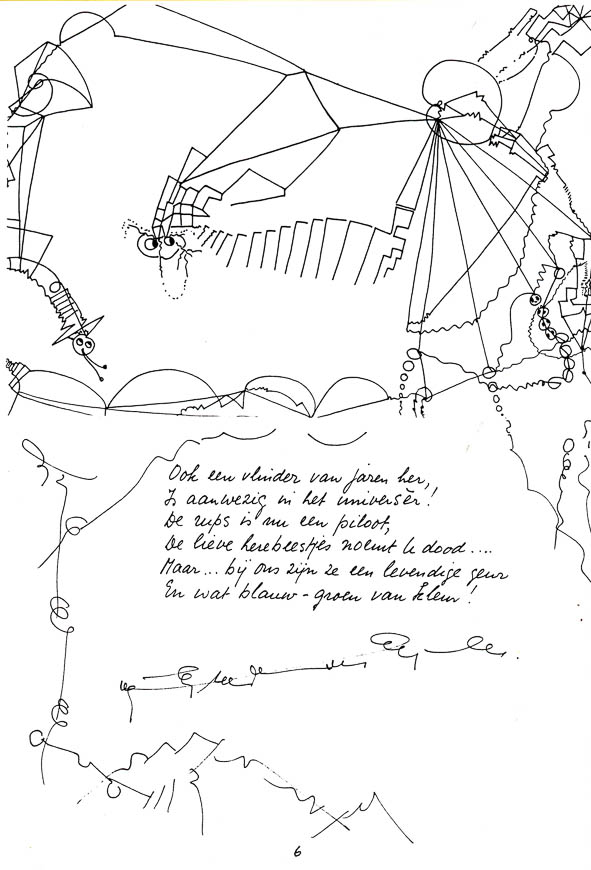 Ook een vlinder van jaren her,
Is aanwezig in het universèr!
De rups is nu een piloot,
De lieve herebeestjes noemt U dood....
Maar... bij ons zijn ze een levendige geur
En wat blauw-groen van kleur!
6